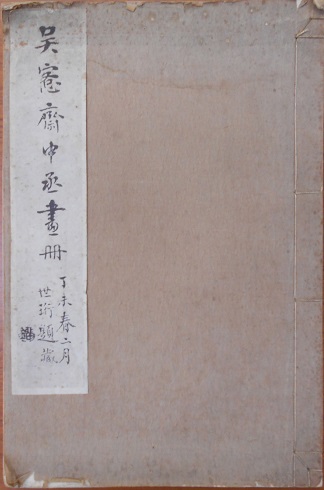 吴愙齋中丞畫冊
丁未春二月
世珩題籤